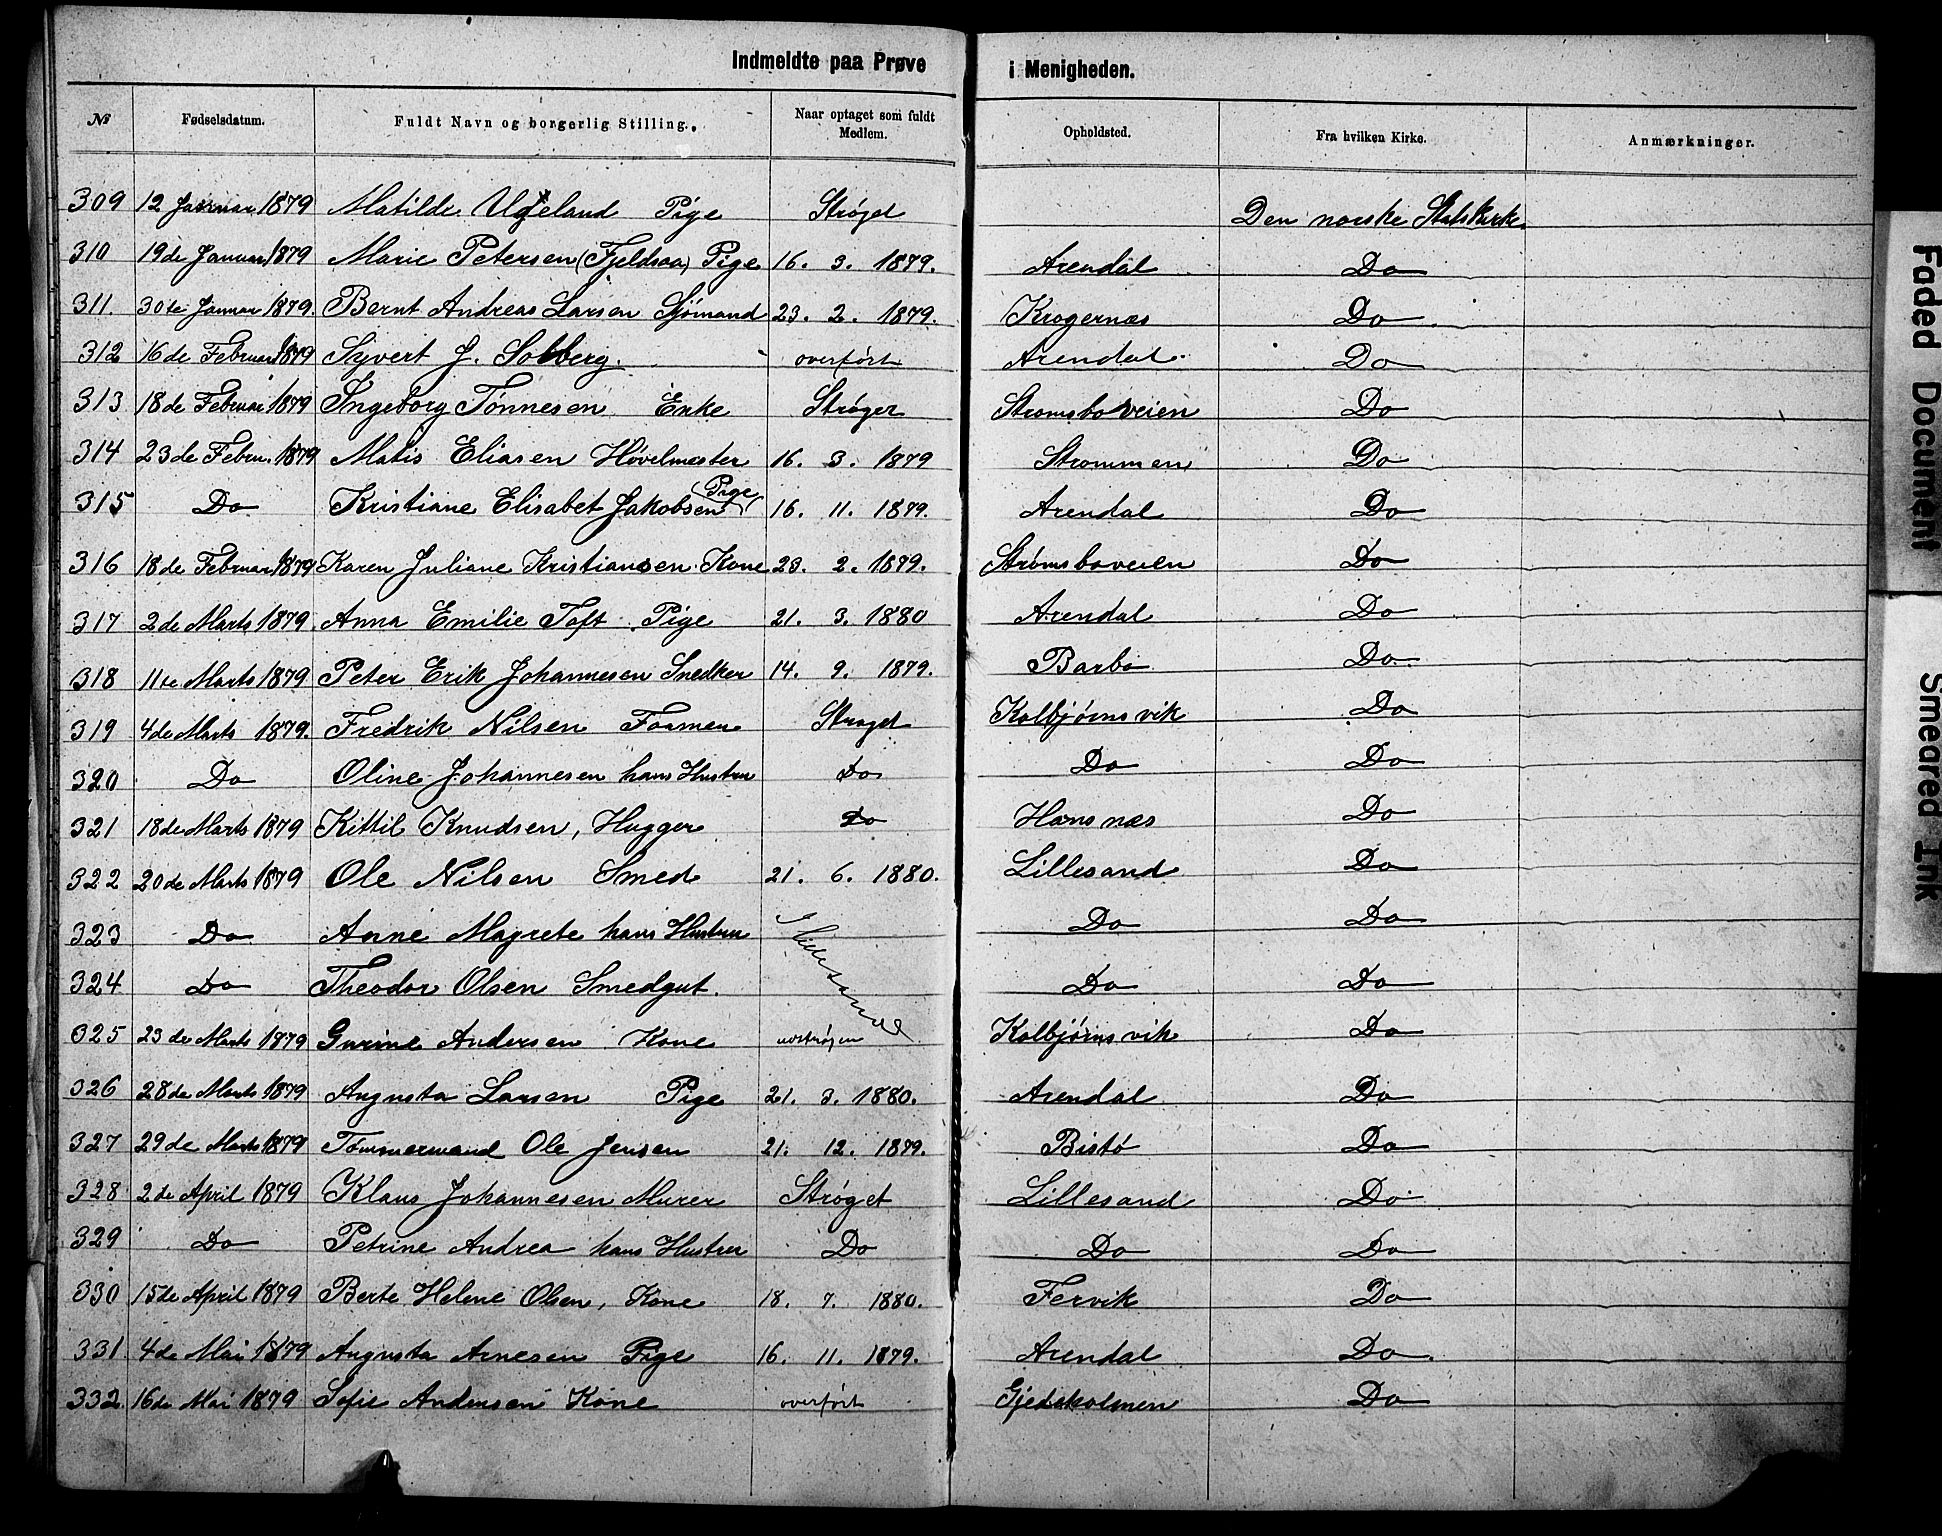 Indmeldte paa Prøve i Menigheden.
№ Fødselsdatum. Fuldt Navn og borgerlig Stilling. Naar optaget som fuldt Medlem. Opholdsted. Fra hvilken Kirke. Anmærkninger.
309 12 Januar 1879 Matilde Ugeland Pige Strøget Den norske Statskirke
310 19de Januar 1879 Marie Petersen (Fjeldsaa) Pige 16. 3. 1879. Arendal Do
311. 30te Januar 1879. Bernt Andreas Larsen Sjömand 23. 2. 1879. Krogernæs Do
312 16de Februar 1879 Syvert J. Solberg. overført Arendal. Do
313 18de Februar 1879 Ingeborg Tønnesen Enke Strøget Strømsboveien Do
314 23de Febru. 1879 Matis Eliasen Høvelmester 16. 3. 1879 Strømmen Do
315 Do Kristiane Elisabet Jakobsen (Pige) 16. 11. 1879. Arendal Do
316 18de Februar 1879 Karen Juliane Kristiansen Kone 23. 2. 1879. Strømsboveien Do
317 2de Marts 1879. Anna Emilie Toft Pige 21. 3. 1880 Arendal Do
318 11te Marts 1879 Peter Erik Johannesen Snedker 14. 9. 1879. Barbo Do
319 4de Marts 1879. Fredrik Nilsen Formen Strøget Kolbjørnsvik Do
320 Do Oline Johannesen hans Hustru Do Do Do
321 18de Marts 1879 Kittil Knudsen, Hugger Do Hansnæs Do
322 20de Marts 1879 Ole Nilsen Smed 21. 6. 1880. Lillesand Do
323 Do Anne Magrete hans Hustru Lillesand Do Do
324 Do Theodor Olsen Smedgut. Do Do
325 23de Marts 1879 Gurine Andersen Kone udstrøgen Kolbjørnsvik Do
326 28de Marts 1879 Augusta Larsen Pige 21. 3. 1880. Arendal Do
327 29de Marts 1879 Tømmermand Ole Jensen 21. 12. 1879. Bistø Do
328 2de April 1879 Klaus Johannesen Murer Strøget Lillesand Do
329 Do Petrine Andrea hans Hustru Do Do Do
330 15de April 1879 Berte Helene Olsen, Kone 18. 7. 1880. Fervik Do
331 4de Mai 1879 Augusta Arnesen Pige 16. 11. 1879. Arendal Do
332. 16de Mai 1879 Sofie Andersen Kone overført Gjedeholmen Do
Faded Document
Smeared Ink